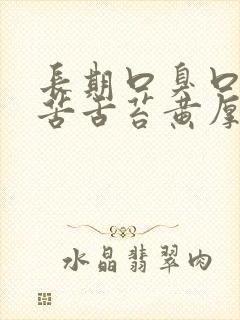 長期口臭口
苦舌苔黄厚
水晶翡翠肉